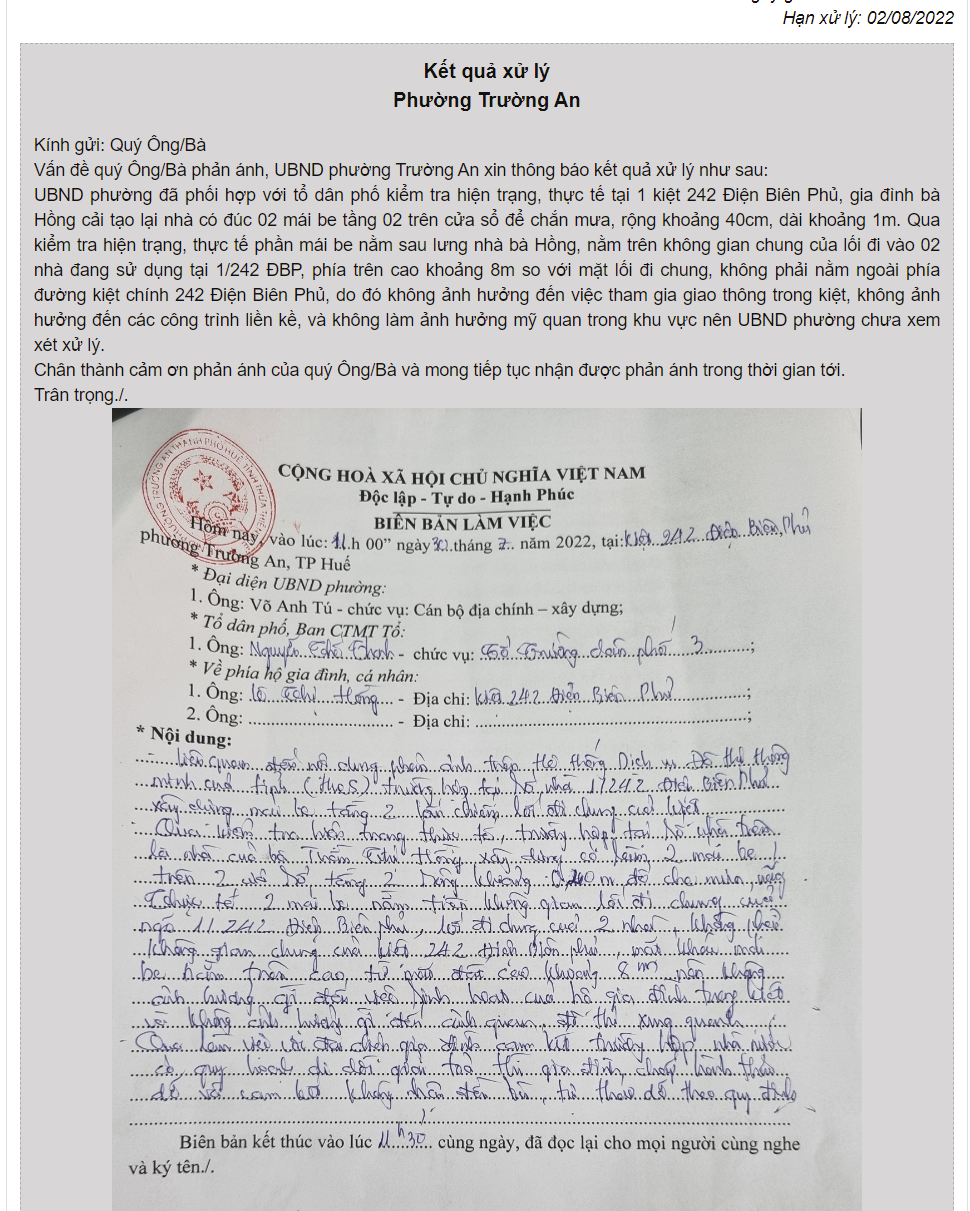 Hạn xử lý: 02/08/2022
Kết quả xử lý
Phường Trường An
Kính gửi: Quý Ông/Bà
Vấn đề quý Ông/Bà phản ánh, UBND phường Trường An xin thông báo kết quả xử lý như sau:
UBND phường đã phối hợp với tổ dân phố kiểm tra hiện trạng, thực tế tại 1 kiệt 242 Điện Biên Phủ, gia đình bà
Hồng cải tạo lại nhà có đúc 02 mái be tầng 02 trên cửa sổ để chắn mưa, rộng khoảng 40cm, dài khoảng 1m. Qua
kiểm tra hiện trạng, thực tế phần mái be nằm sau lưng nhà bà Hồng, nằm trên không gian chung của lối đi vào 02
nhà đang sử dụng tại 1/242 ĐBP, phía trên cao khoảng 8m so với mặt lối đi chung, không phải nằm ngoài phía
đường kiệt chính 242 Điện Biên Phủ, do đó không ảnh hưởng đến việc tham gia giao thông trong kiệt, không ảnh
hưởng đến các công trình liền kề, và không làm ảnh hưởng mỹ quan trong khu vực nên UBND phường chưa xem
xét xử lý.
Chân thành cảm ơn phản ánh của quý Ông/Bà và mong tiếp tục nhận được phản ánh trong thời gian tới.
Trân trọng./.
CỘNG HOÀ XÃ HỘI CHỦ NGHĨA VIỆT NAM
Độc lập - Tự do - Hạnh Phúc
BIÊN BẢN LÀM VIỆC
Hôm nay, vào lúc: 11.h 00” ngày 30 tháng 7 năm 2022, tại: Kiệt 242 Điện Biên Phủ
phường Trường An, TP Huế
* Đại diện UBND phường:
1. Ông: Võ Anh Tú - chức vụ: Cán bộ địa chính – xây dựng;
* Tổ dân phố, Ban CTMT Tổ:
1. Ông: Nguyễn Chí Thanh - chức vụ: Tổ Trưởng dân phố 3;
* Về phía hộ gia đình, cá nhân:
1. Ông: Thị Hồng - Địa chỉ: Kiệt 242 Điện Biên Phủ;
2. Ông: - Địa chỉ: ;
* Nội dung:
- Liên quan đến nội dung phản ánh trên hệ thống Dịch vụ Đô thị thông
minh của tỉnh trường hợp tại số nhà 1/242 Điện Biên Phủ
xây dựng mái be tầng 2 lấn chiếm lối đi chung của kiệt
Qua kiểm tra hiện trạng thực tế, trường hợp tại số nhà trên
là nhà của bà Thị Hồng xây dựng có làm 2 mái be
trên 2 cửa sổ, tầng 2 rộng khoảng 0,40m để che mưa, nắng
Thực tế 2 mái be nằm trên không gian lối đi chung của
ngõ 1/242 Điện Biên Phủ, lối đi chung của 2 nhà, không phải
không gian chung của kiệt 242 Điện Biên Phủ, mặt khác mái
be nằm trên cao, từ mặt đất cao khoảng 8m nên không
ảnh hưởng gì đến việc sinh hoạt của hộ gia đình trong kiệt
và không ảnh hưởng gì đến cảnh quan, đô thị xung quanh
Qua làm việc đại diện gia đình cam kết trường hợp nhà nước
có quy hoạch di dời giải toả thì gia đình chấp hành tháo
dỡ và cam kết không nhận đền bù, tự tháo dỡ theo quy định
Biên bản kết thúc vào lúc 11h30 cùng ngày, đã đọc lại cho mọi người cùng nghe
và ký tên./.